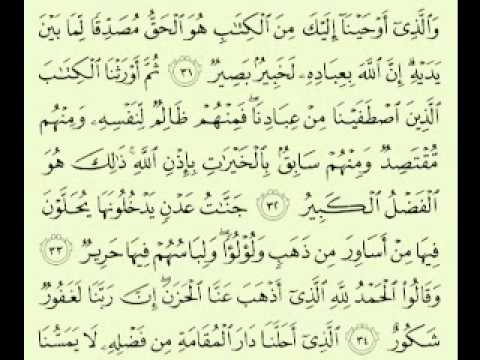 وَٱلَّذِىٓ أَوْحَيْنَآ إِلَيْكَ مِنَ ٱلْكِتَٰبِ هُوَ ٱلْحَقُّ مُصَدِّقًا لِّمَا بَيْنَ
يَدَيْهِۗ إِنَّ ٱللَّهَ بِعِبَادِهِۦ لَخَبِيرٌۢ بَصِيرٌ ٣١ ثُمَّ أَوْرَثْنَا ٱلْكِتَٰبَ
ٱلَّذِينَ ٱصْطَفَيْنَا مِنْ عِبَادِنَاۖ فَمِنْهُمْ ظَالِمٌ لِّنَفْسِهِۦ وَمِنْهُم
مُّقْتَصِدٌ وَمِنْهُمْ سَابِقٌۢ بِٱلْخَيْرَٰتِ بِإِذْنِ ٱللَّهِۚ ذَٰلِكَ هُوَ
ٱلْفَضْلُ ٱلْكَبِيرُ ٣٢ جَنَّٰتُ عَدْنٍ يَدْخُلُونَهَا يُحَلَّوْنَ
فِيهَا مِنْ أَسَاوِرَ مِن ذَهَبٍ وَلُؤْلُؤًاۖ وَلِبَاسُهُمْ فِيهَا حَرِيرٌ ٣٣
وَقَالُوا۟ ٱلْحَمْدُ لِلَّهِ ٱلَّذِىٓ أَذْهَبَ عَنَّا ٱلْحَزَنَۖ إِنَّ رَبَّنَا لَغَفُورٌ
شَكُورٌ ٣٤ ٱلَّذِىٓ أَحَلَّنَا دَارَ ٱلْمُقَامَةِ مِن فَضْلِهِۦ لَا يَمَسُّنَا